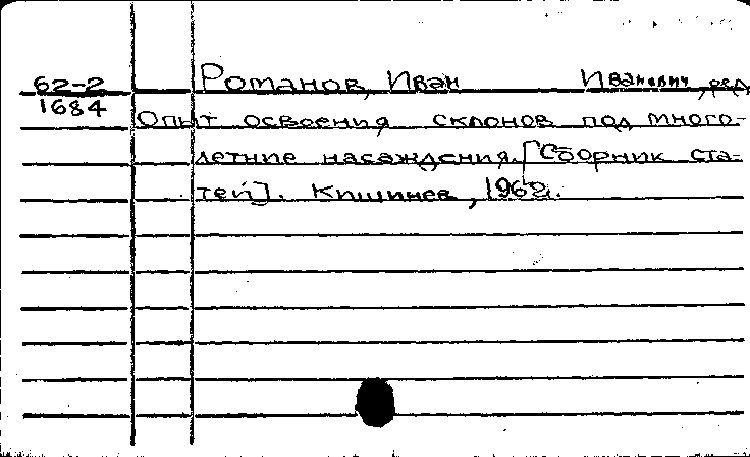 62-2 Романов, Иван Иванович, ред.
1684 Опыт освоения склонов под много-
летние насаждения. [Сборник ста-
тей]. Кишинев, 1962.